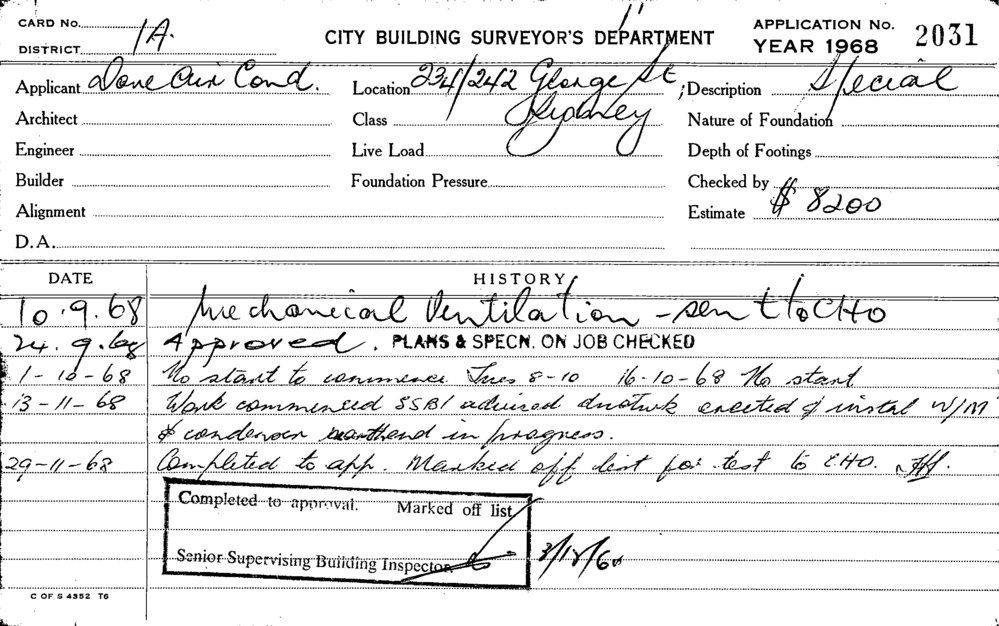 CARD No.
DISTRICT 1A.
CITY BUILDING SURVEYOR'S DEPARTMENT
APPLICATION No. 2031
YEAR 1968
Applicant Dane Air Cond. Location 234/242 George St, Description Special
Sydney
Architect Class Nature of Foundation
Engineer Live Load Depth of Footings
Builder Foundation Pressure Checked by
Alignment Estimate $ 8200
D.A.
DATE HISTORY
10.9.68 Mechanical Ventilation - sent to CHO
24.9.68 Approved. PLANS & SPECN. ON JOB CHECKED
1-10-68 No start to commence Tues 8-10 16-10-68 No start
13-11-68 Work commenced SSBI advised ductwk erected & instal W/M
& condenser in progress.
29-11-68 Completed to app. Marked off list for test to CHO.
Completed to approval. Marked off list
Senior Supervising Building Inspector
3/12/68
C OF S 4352 T6